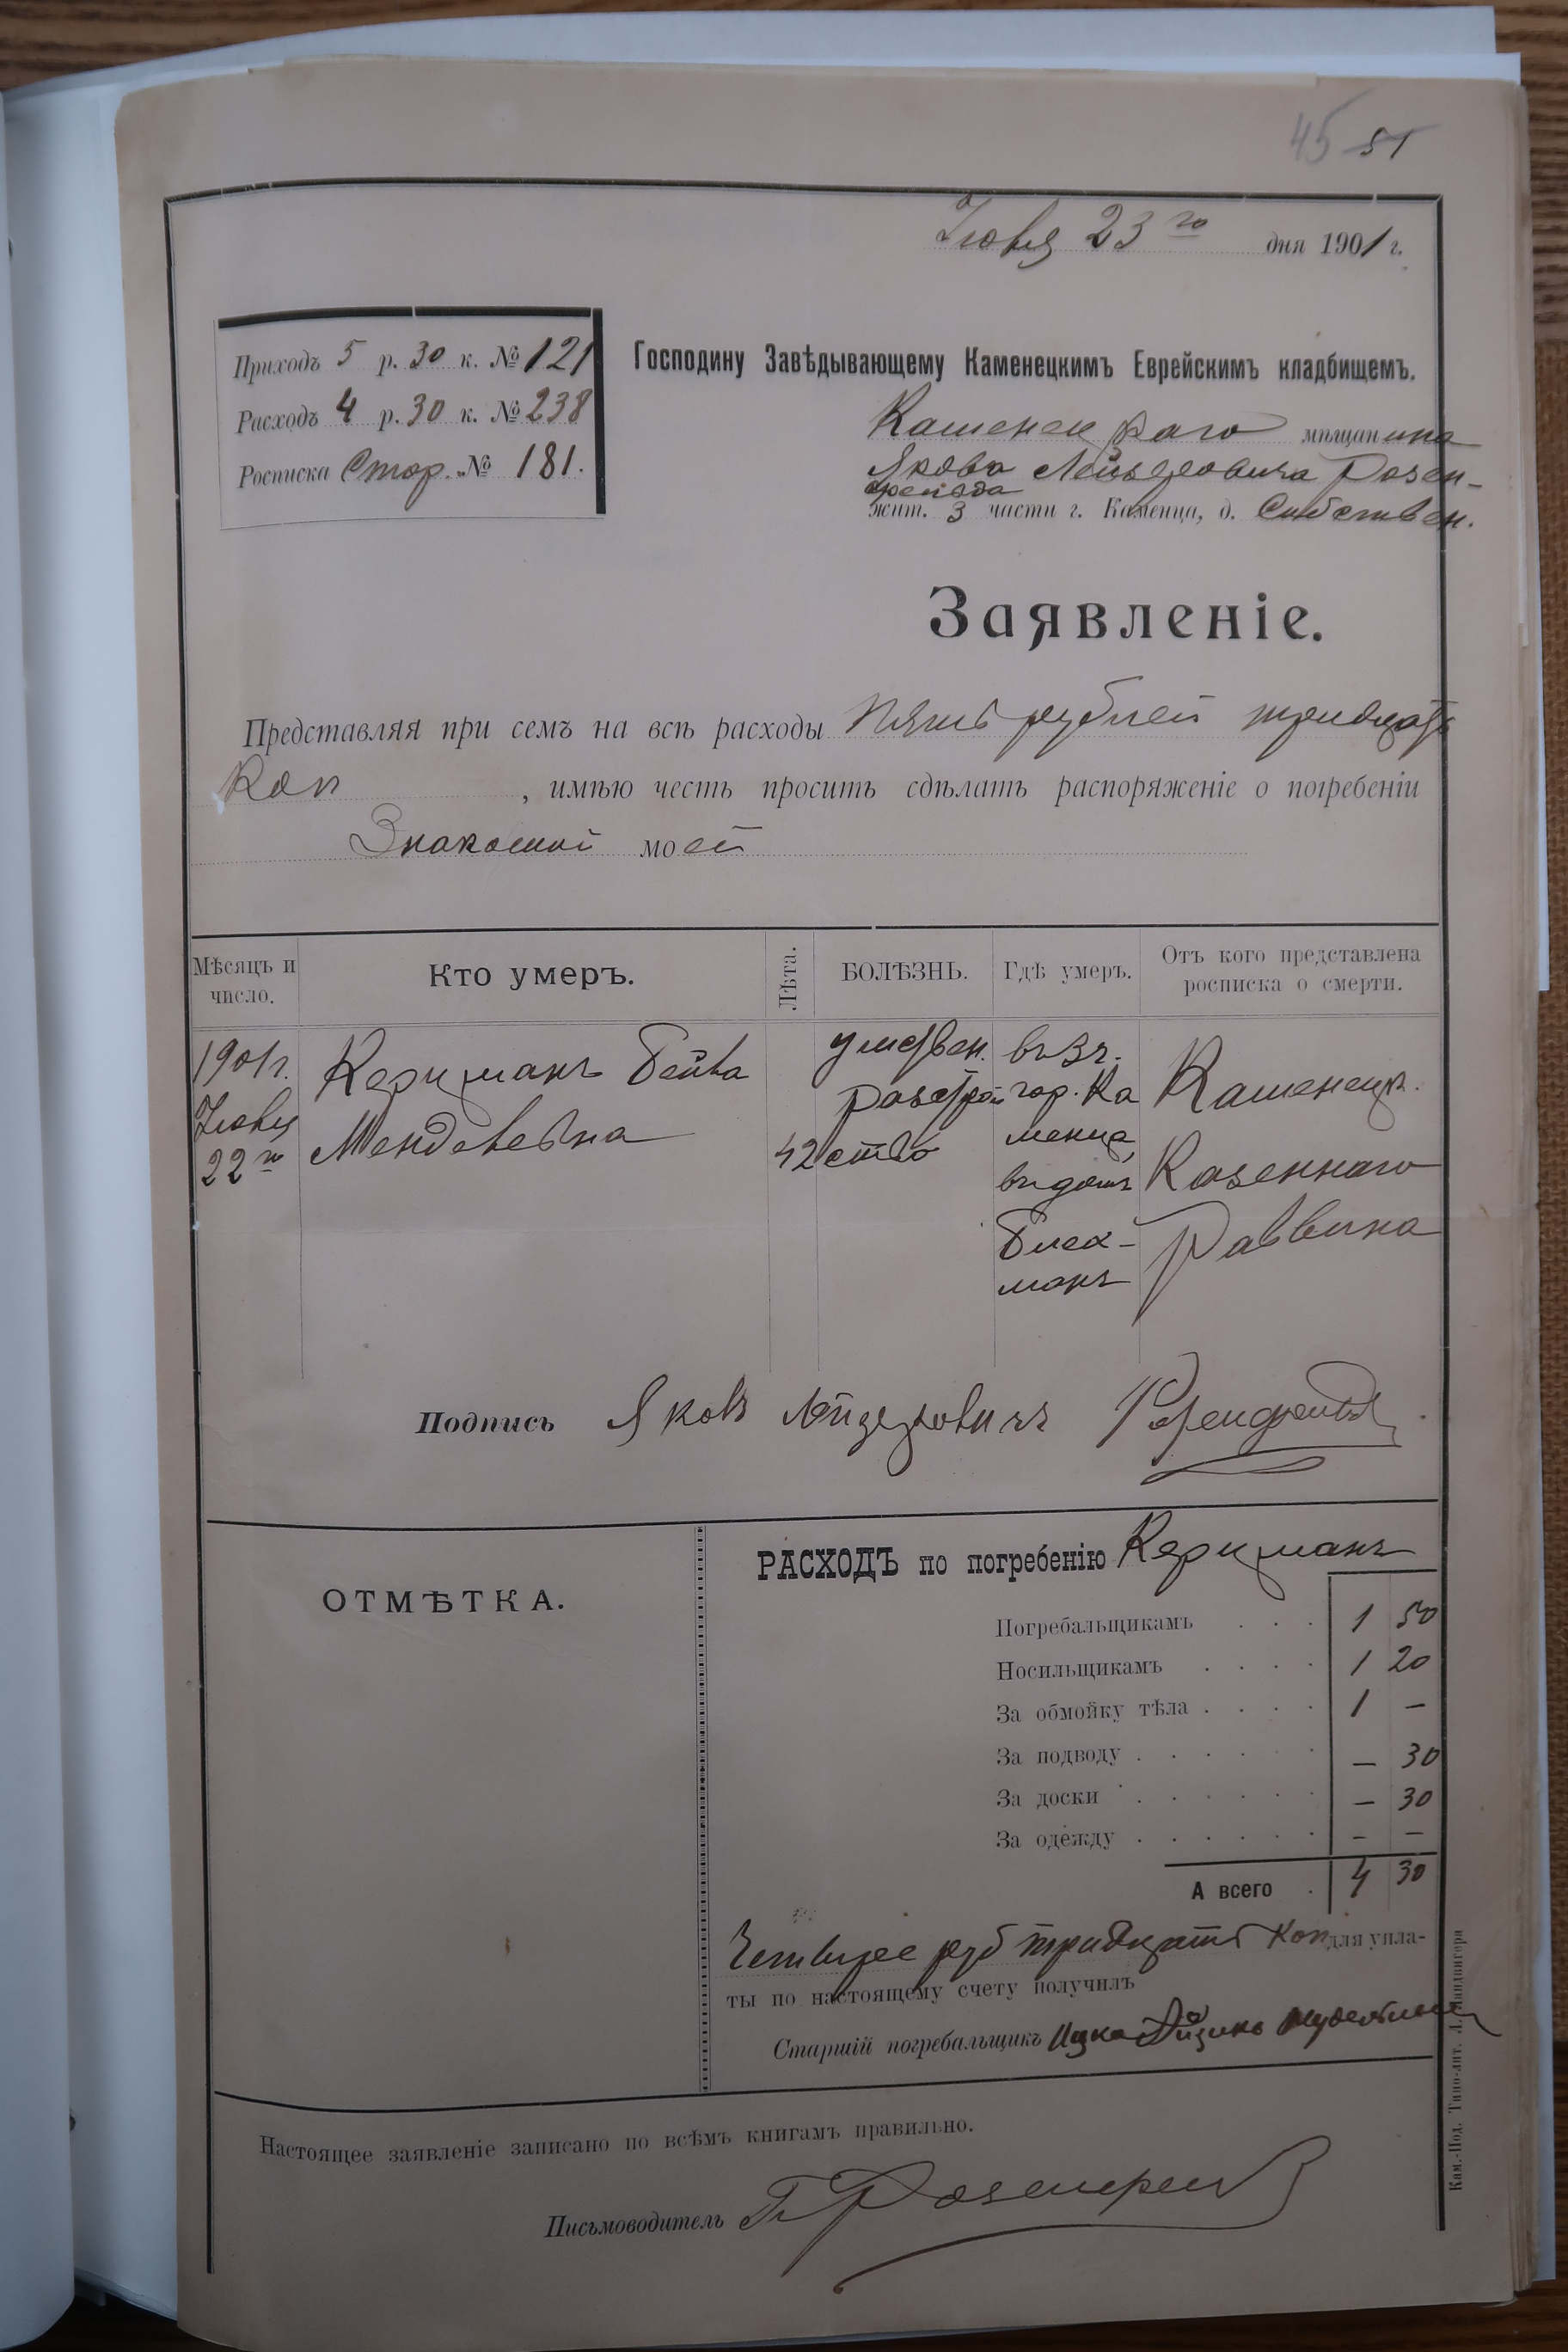 45 51
Іюня 23 го дня 1901 г.
Приходъ 5 р. 30 к. № 121
Расходъ 4 р. 30 к. № 238
Росписка Стор. № 181.
Господину Завѣдывающему Каменецкимъ Еврейскимъ кладбищемъ.
Каменецкаго мѣщанина
Якова Лейзеровича Розен-
жит. 3 части г. Каменца, д. Собствен.
Заявленіе.
Представляя при семъ на всѣ расходы Пять рублей тридцать
Коп , имѣю честь просить сдѣлать распоряженіе о погребеніи
Знакомой моей
Мѣсяцъ и число.
Кто умеръ.
Лѣта.
БОЛѢЗНЬ.
Гдѣ умеръ.
Отъ кого представлена росписка о смерти.
1901 г.
Іюня
22 го
Керцманъ Бейла
Менделевна
42
умствен.
разстрой
ство
въ 3 ч.
гор. Ка
менца
въ домѣ
манъ
Каменецк.
Казеннаго
Раввина
Подпись Яковъ Лейзеровичъ
ОТМѢТКА.
РАСХОДЪ по погребенію Керцманъ
Погребальщикамъ . . . 1 50
Носильщикамъ . . . . 1 20
За обмойку тѣла . . . . 1 —
За подводу . . . . . . — 30
За доски . . . . . . — 30
За одежду . . . . . . - —
А всего . 4 30
Четыре руб тридцать Коп для упла-
ты по настоящему счету получилъ
Старшій погребальщикъ Ицко Айзикъ
Настоящее заявленіе записано по всѣмъ книгамъ правильно.
Письмоводитель
Кам.-Под. Типо-лит. Л. Ландвигера